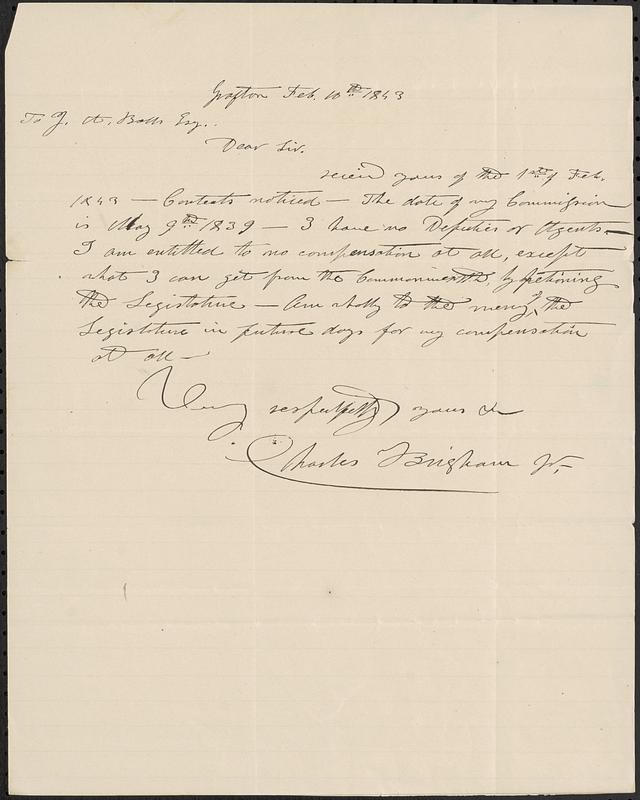 Grafton Feb. 10th 1843
To J. A. Bolls Esq.
Dear Sir.
recieved yours of the 1st of Feb.
1843 — Contents noticed — The date of my Commission
is May 9th 1839 — I have no Deputies or Agents —
I am entitled to no compensation at all, except
what I can get from the Commonwealth, by petitioning
the Legislature — Am wholly to the mercy of the
Legislature in future days for my compensation
at all —
Very respectfully yours &c
Charles Brigham Jr.